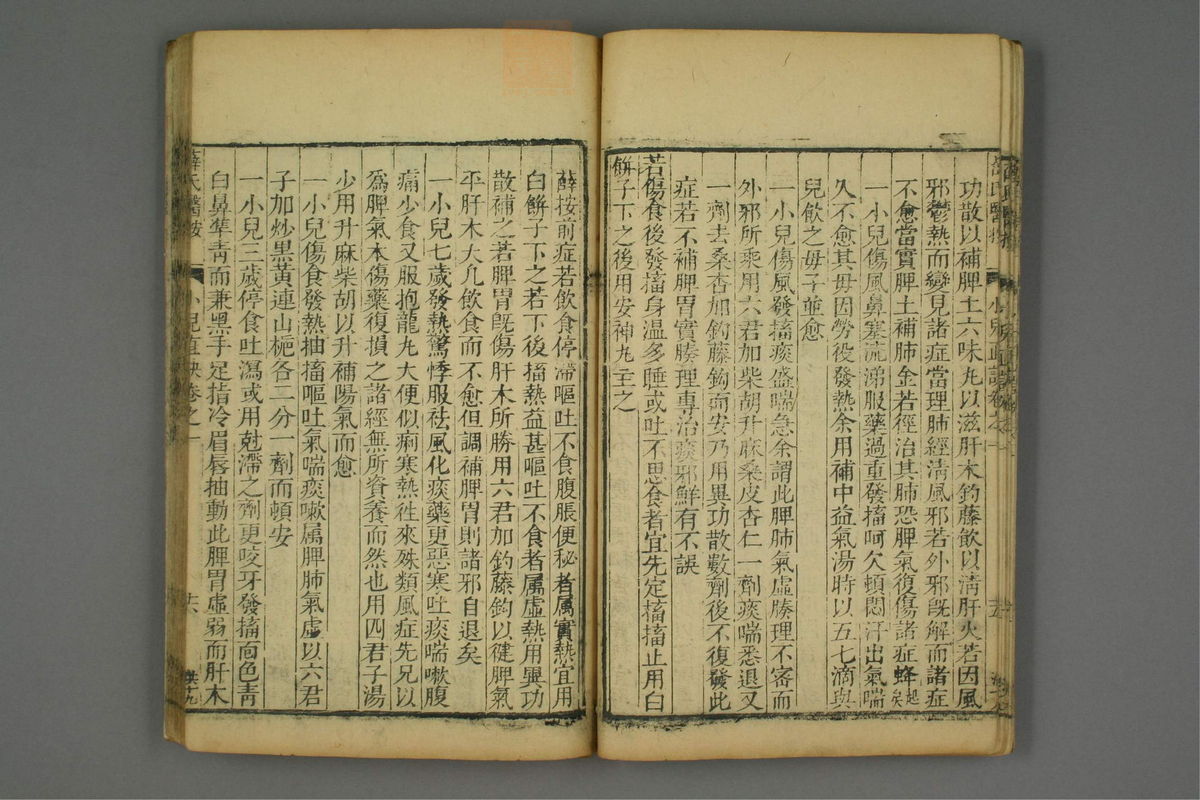 功散以補脾土六味丸以滋肝木釣藤飲以清肝火若因風
邪鬱熱而變見諸症當理肺經清風邪若外邪旣解而諸症
不愈當實脾土補肺金若徑治其肺恐脾氣復傷諸症蜂起矣
一小兒傷風鼻塞流涕服藥過重發搐呵欠頓悶汗出氣喘
久不愈其母因勞役發熱余用補中益氣湯時以五七滴與
兒飲之母子並愈
一小兒傷風發搐痰盛喘急余謂此脾肺氣虛腠理不密而
外邪所乘用六君加柴胡升麻桑皮杏仁一劑痰喘悉退又
一劑去桑杏加釣藤鈎而安乃用異功散數劑後不復發此
症若不補脾胃實腠理專治痰邪鮮有不誤
若傷食後發搐身温多睡或吐不思食者宜先定搐搐止用白
餠子下之後用安神丸主之
薛按前症若飲食停滯嘔吐不食腹脹便秘者属實熱宜用
白餠子下之若下後搐熱益甚嘔吐不食者属虛熱用異功
散補之若脾胃旣傷肝木所勝用六君加釣藤鈎以健脾氣
平肝木大凡飲食而不愈但調補脾胃則諸邪自退矣
一小兒七歲發熱驚悸服祛風化痰藥更惡寒吐痰喘嗽腹
痛少食又服抱龍丸大便似痢寒熱徃來殊類風症先兄以
爲脾氣本傷藥復損之諸經無所資養而然也用四君子湯
少用升麻柴胡以升補陽氣而愈
一小兒傷食發熱抽搐嘔吐氣喘痰嗽属脾肺氣虛以六君
子加炒黑黃連山梔各二分一劑而頓安
一小兒三歲停食吐瀉或用尅滯之劑更咬牙發搐面色靑
白鼻準靑而兼黑手足指冷眉唇抽動此脾胃虛弱而肝木
薛氏醫按 小兒直訣卷之一 十六